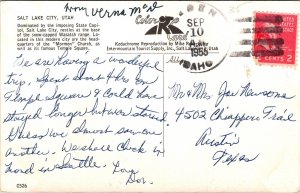 from Verna Mae
SALT LAKE CITY, UTAH
Dominated by the imposing State Capitol, Salt Lake City, rests at the base of the snow-capped Wasatch range. Located in this modern city are the headquarters of the "Mormon" Church, as well as its famous Temple Square.
Color
Land
Kodachrome Reproduction by Mike Roberts
Intermountain Tourist Supply, Inc., Salt Lake City, Utah
SEP
10
1956
IDAHO
2
We are having a wonderful
trip. Spent about 4 hrs on
Temple Square & could have
stayed longer but were tired.
Guess we almost saw one
another. We shall check in
Mond in Seattle. Love
Dor.
Mr & Mrs. Joe Parsons
4502 Chiappero Trail
Austin
Texas
C526